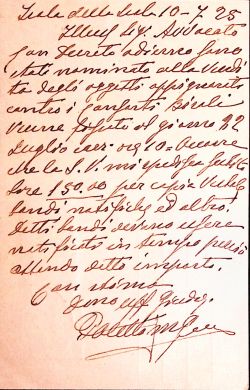 Isola della Scala 10-7.25
Illmo Sig. Avvocato
Con Decreto odierno sono
stato nominato alla Vendita
degli oggetti appignorati
contro i consorti
Venne fissato il giorno 22
Luglio ore 10. Occorre
che la S.V. mi spedisca subito
Lire 150,00 per copia
bandi notifiche ed altro.
Detti bandi devono essere
notificati in tempo perciò
attendo detto importo.
Con stima
Uff. Giudiz.